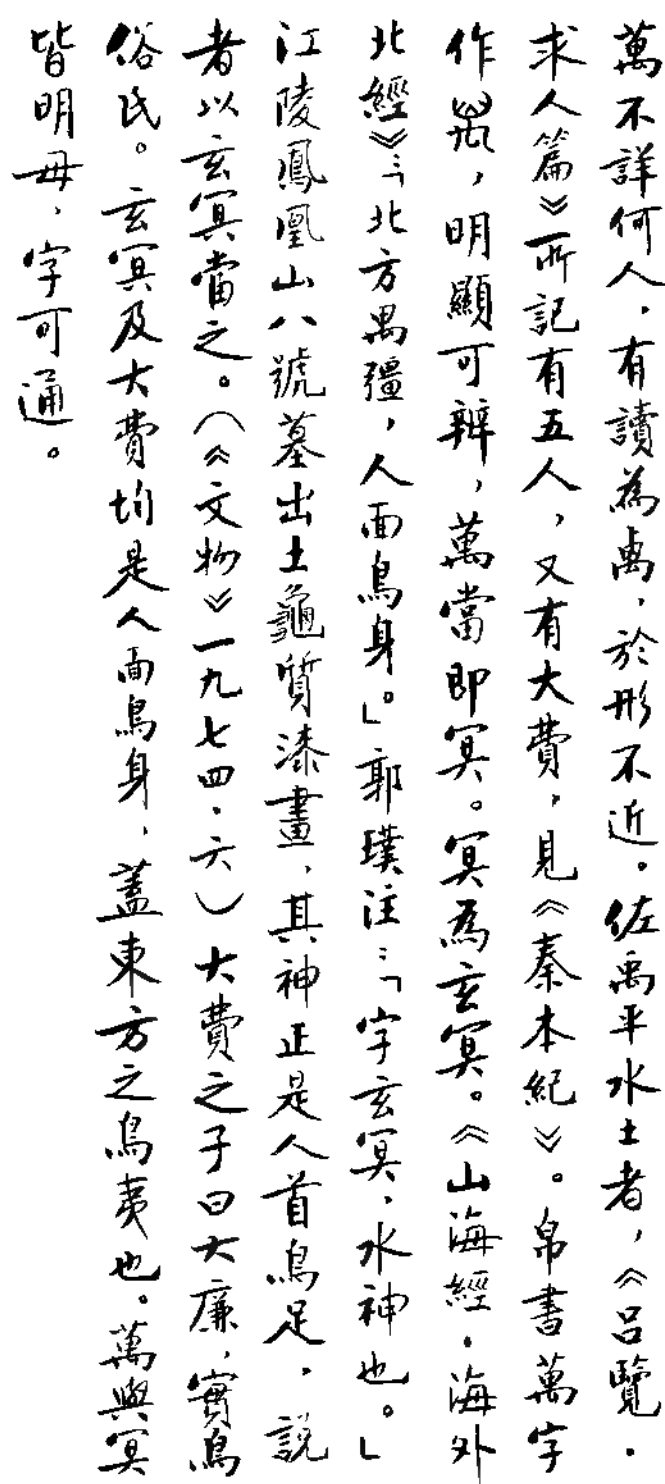 萬不詳何人，有讀為离，於形不近。佐禹平水土者，《呂覽．
求人篇》所記有五人，又有大費，見《秦本紀》。帛書萬字
作，明顯可辨，萬當即冥。冥為玄冥。《山海經．海外
北經》：「北方禺彊，人面鳥身。」郭璞注：「字玄冥，水神也。」
江陵鳳凰山八號墓出土龜質漆畫，其神正是人首鳥足，說
者以玄冥當之。（《文物》一九七四．六）大費之子曰大廉，實鳥
俗氏。玄冥及大費均是人面鳥身，蓋東方之鳥夷也。萬與冥
皆明母，字可通。